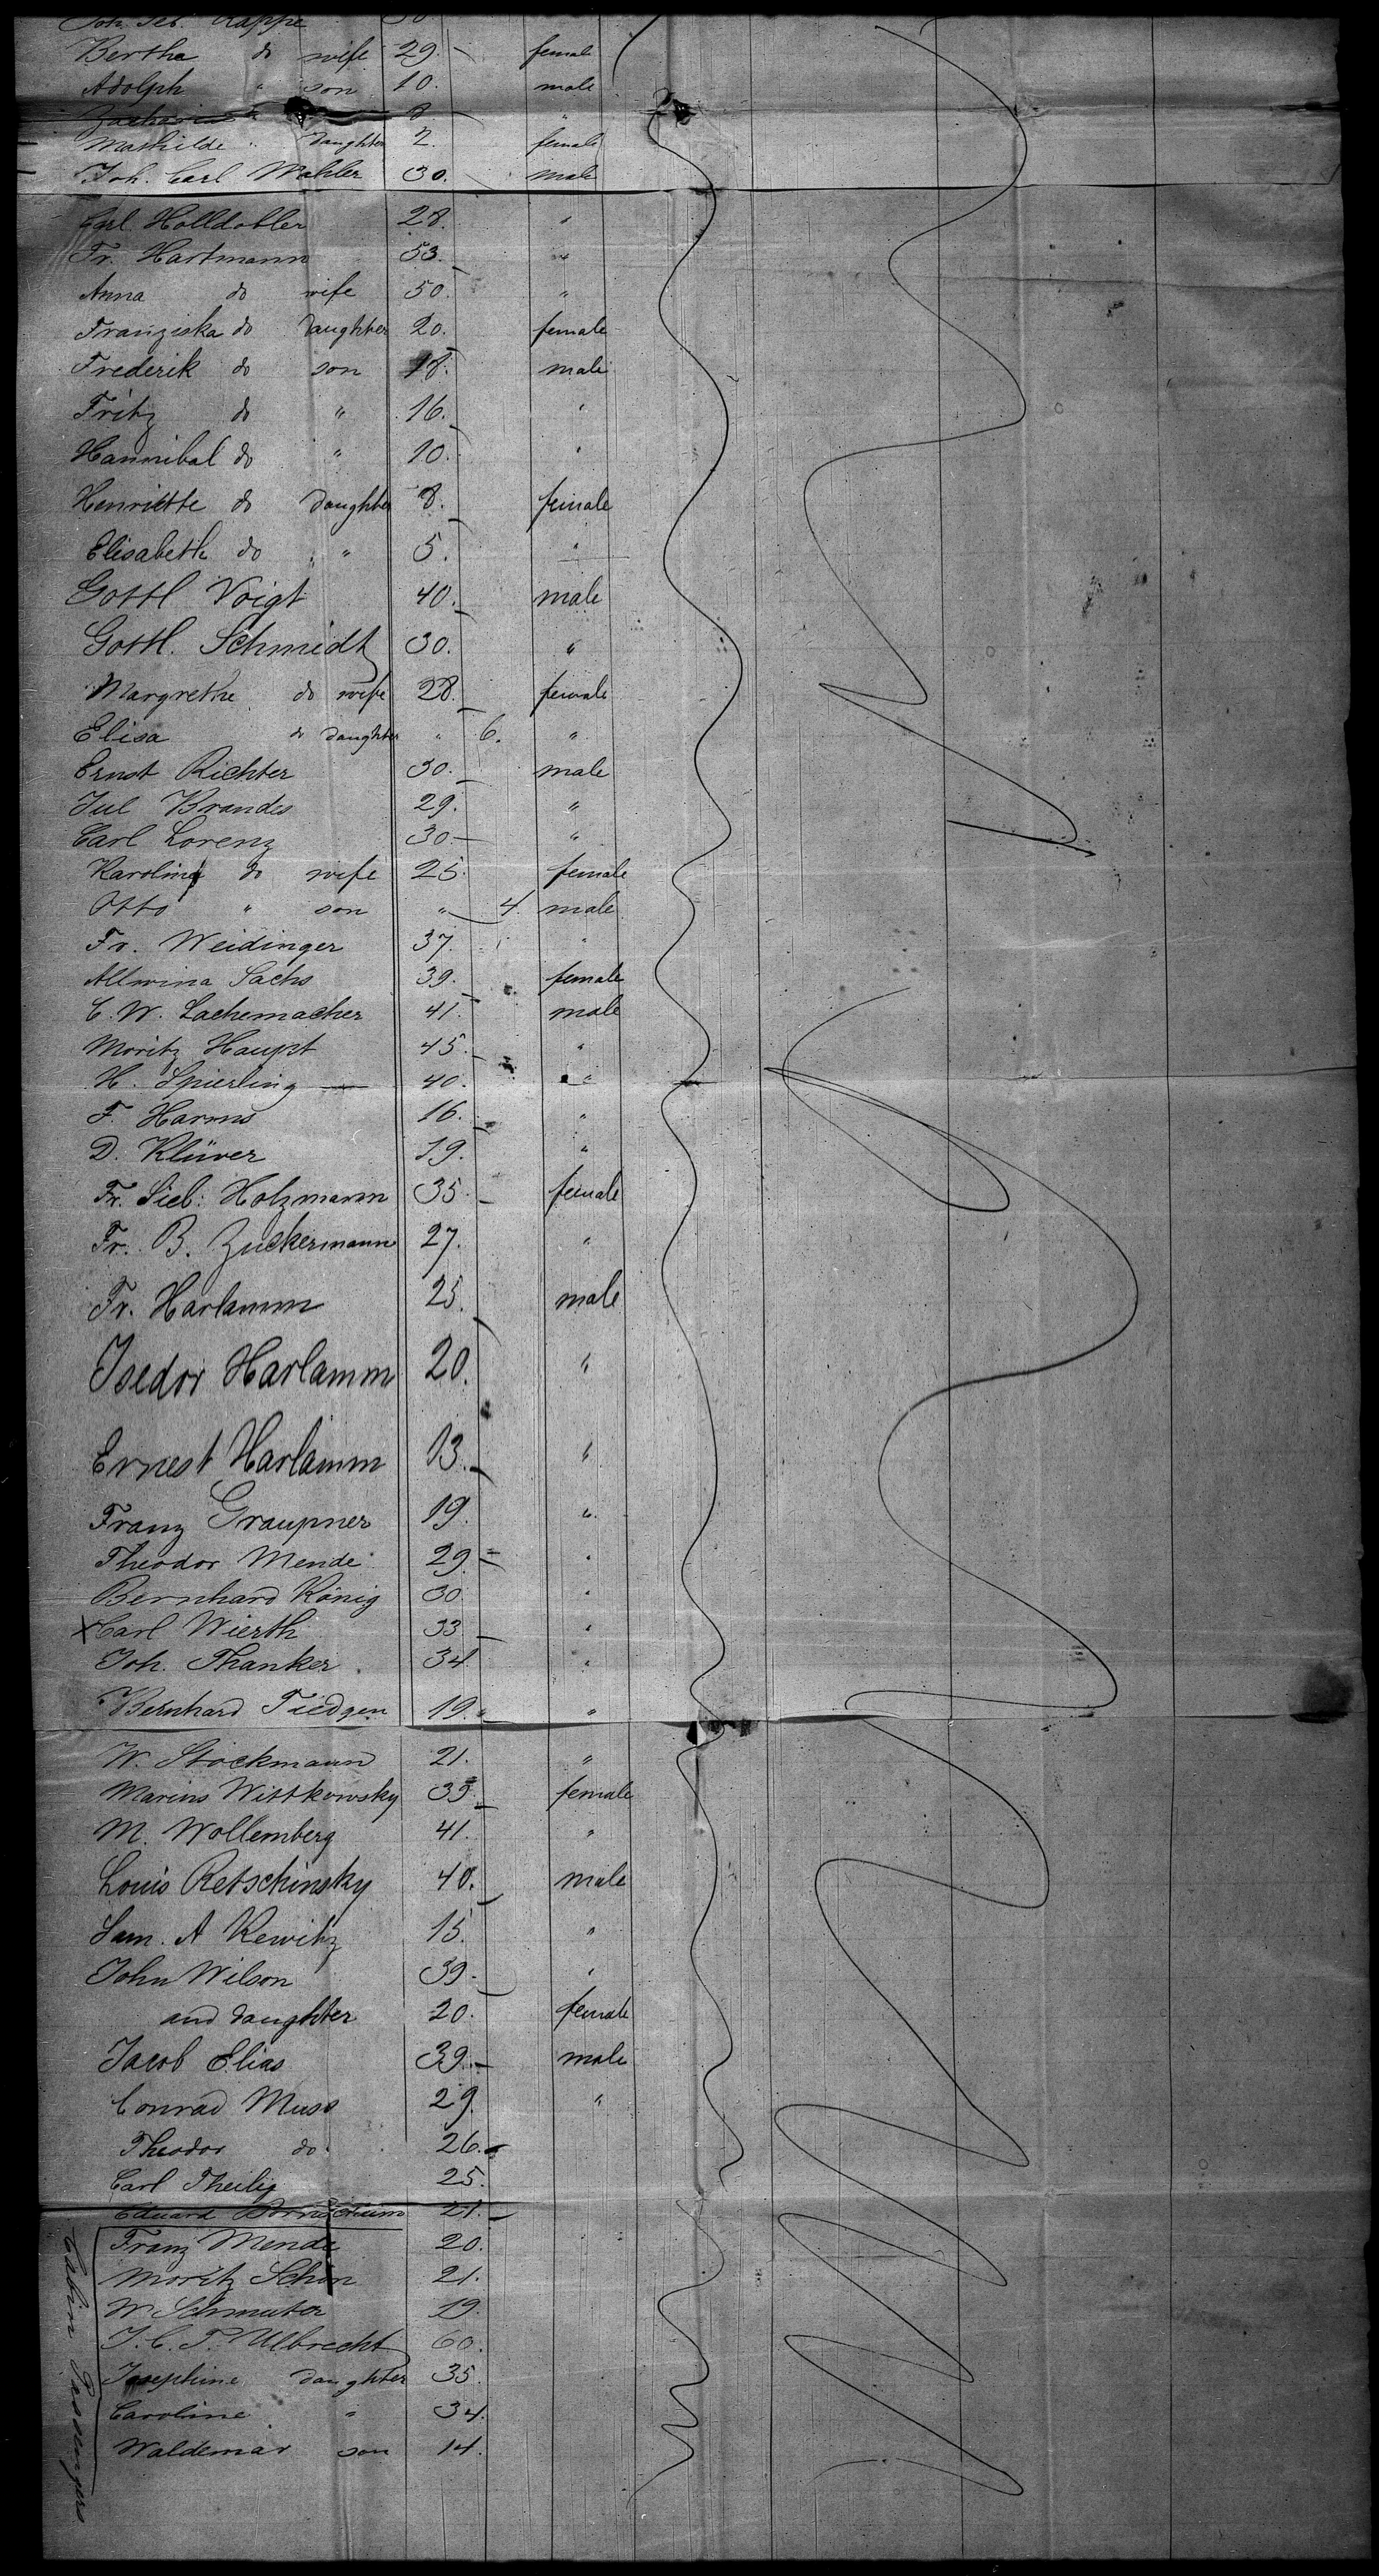 Joh. Seb. Rappe 30
Bertha do wife 29. female
Adolph " son 10. male
Zacharias " " 8. "
Mathilde " daughter 2. female
Joh. Carl Mahler 30. male
Carl Holldobler 28. "
Fr. Hartmann 53. "
Anna do wife 50. "
Franziska do daughter 20. female
Frederik do son 18. male
Fritz do " 16. "
Hannibal do " 10. "
Henriette do daughter 8. female
Elisabeth do " 5. "
Gottl Voigt 40. male
Gottl. Schmidt 30. "
Margrethe do wife 28. female
Elisa do daughter " 6. "
Ernst Richter 30. male
Jul Brandes 29. "
Carl Lorenz 30 "
Karolina do wife 25. female
Otto " son " 4. male
Fr. Weidinger 37. "
Allwina Sachs 39. female
C. W. Lachemacher 41. male
Moritz Haupt 45. "
H. Spierling 40. "
F. Harms 16. "
D. Klüver 19. "
Fr. Sieb: Holzmann 35. female
Fr. B. Zuckermann 27. "
Fr. Harlamm 25. male
Isedor Harlamm 20. "
Ernest Harlamm 13. "
Franz Graupner 19. "
Theodor Mende 29. "
Bernhard König 30 "
x Carl Wierth 33 "
Joh. Thanker 34 "
Bernhard Tiedgen 19. "
W. Stockmann 21. "
Marius Wittkowsky 35. female
M. Wollemberg 41. "
Louis Retschinsky 40. male
Sam. A Kewitz 15. "
John Wilson 39. "
and daughter 20. female
Jacob Elias 39. male
Conrad Muss 29. "
Theodor do. 26.
Carl Theilig 25.
Eduard 21.
Cabin Passengers
Franz Mende 20.
Moritz Schön 21.
W. Schmuter 19.
J. C. T. Ulbrecht 60.
Josephine daughter 35.
Caroline " 34.
Waldemar son 14.